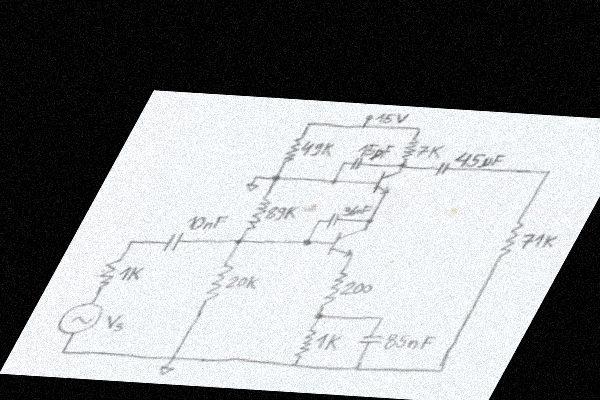 15V
49K
15pF
7K
45µF
89K
10nF
71K
1K
20K
200
Vs
1K
85nF